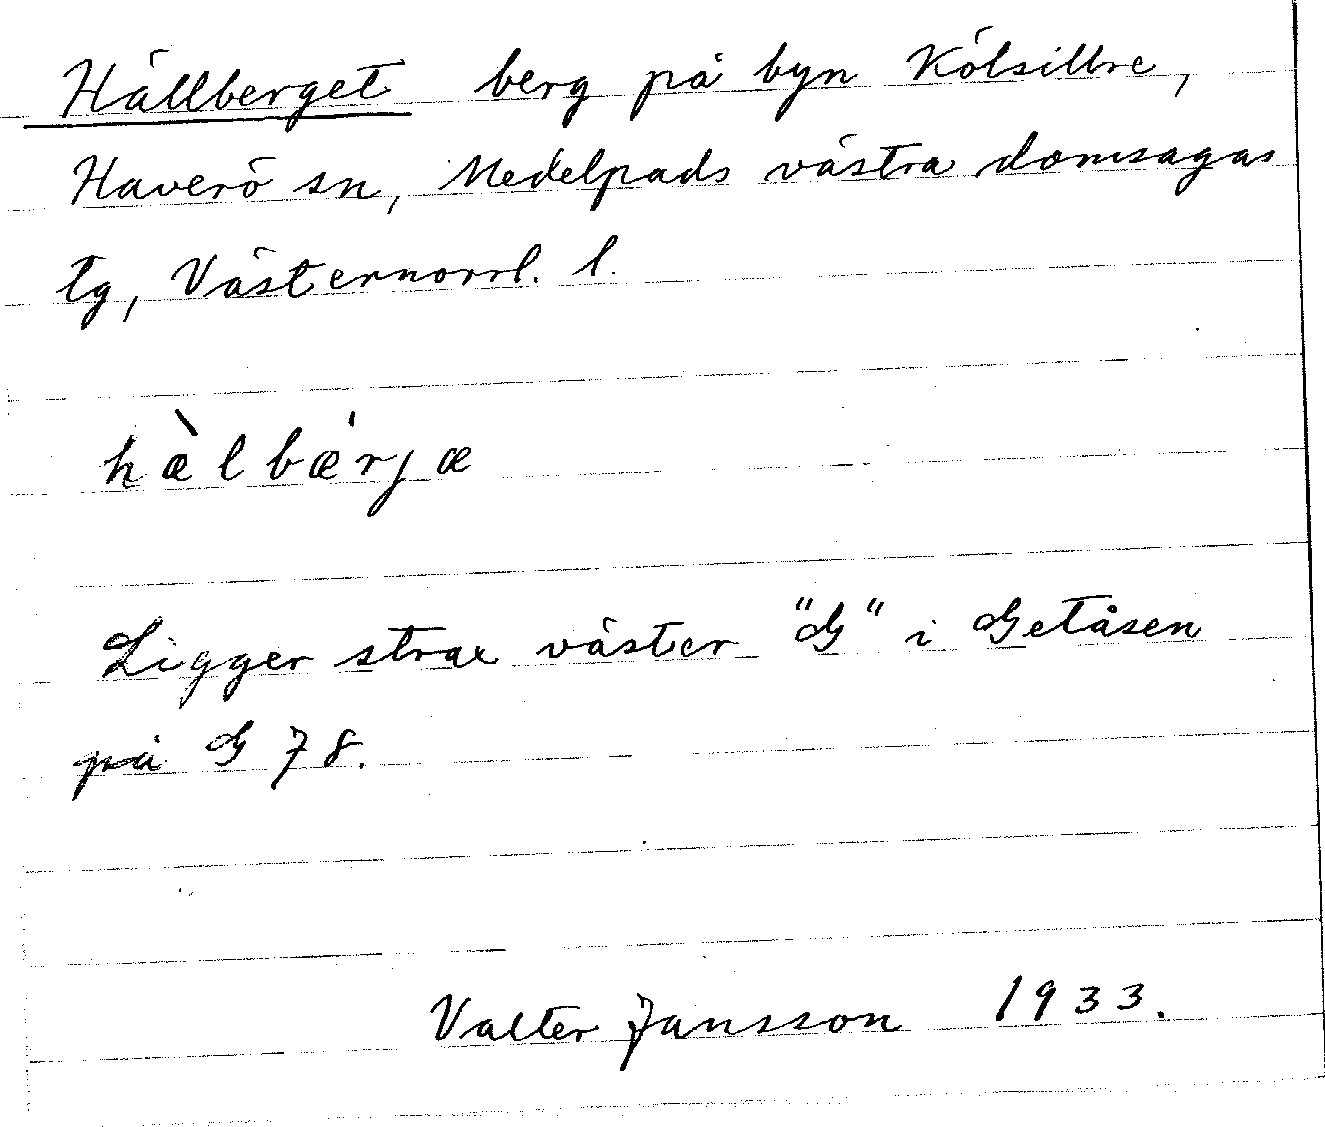 Hällberget berg på byn Kölsillre,
Haverö sn, Medelpads västra domsagas
tg, Västernorrl. l.
hæ̀lbǽrjæ
Ligger strax väster "G" i Getåsen
på G 78.
Valter Jansson 1933.